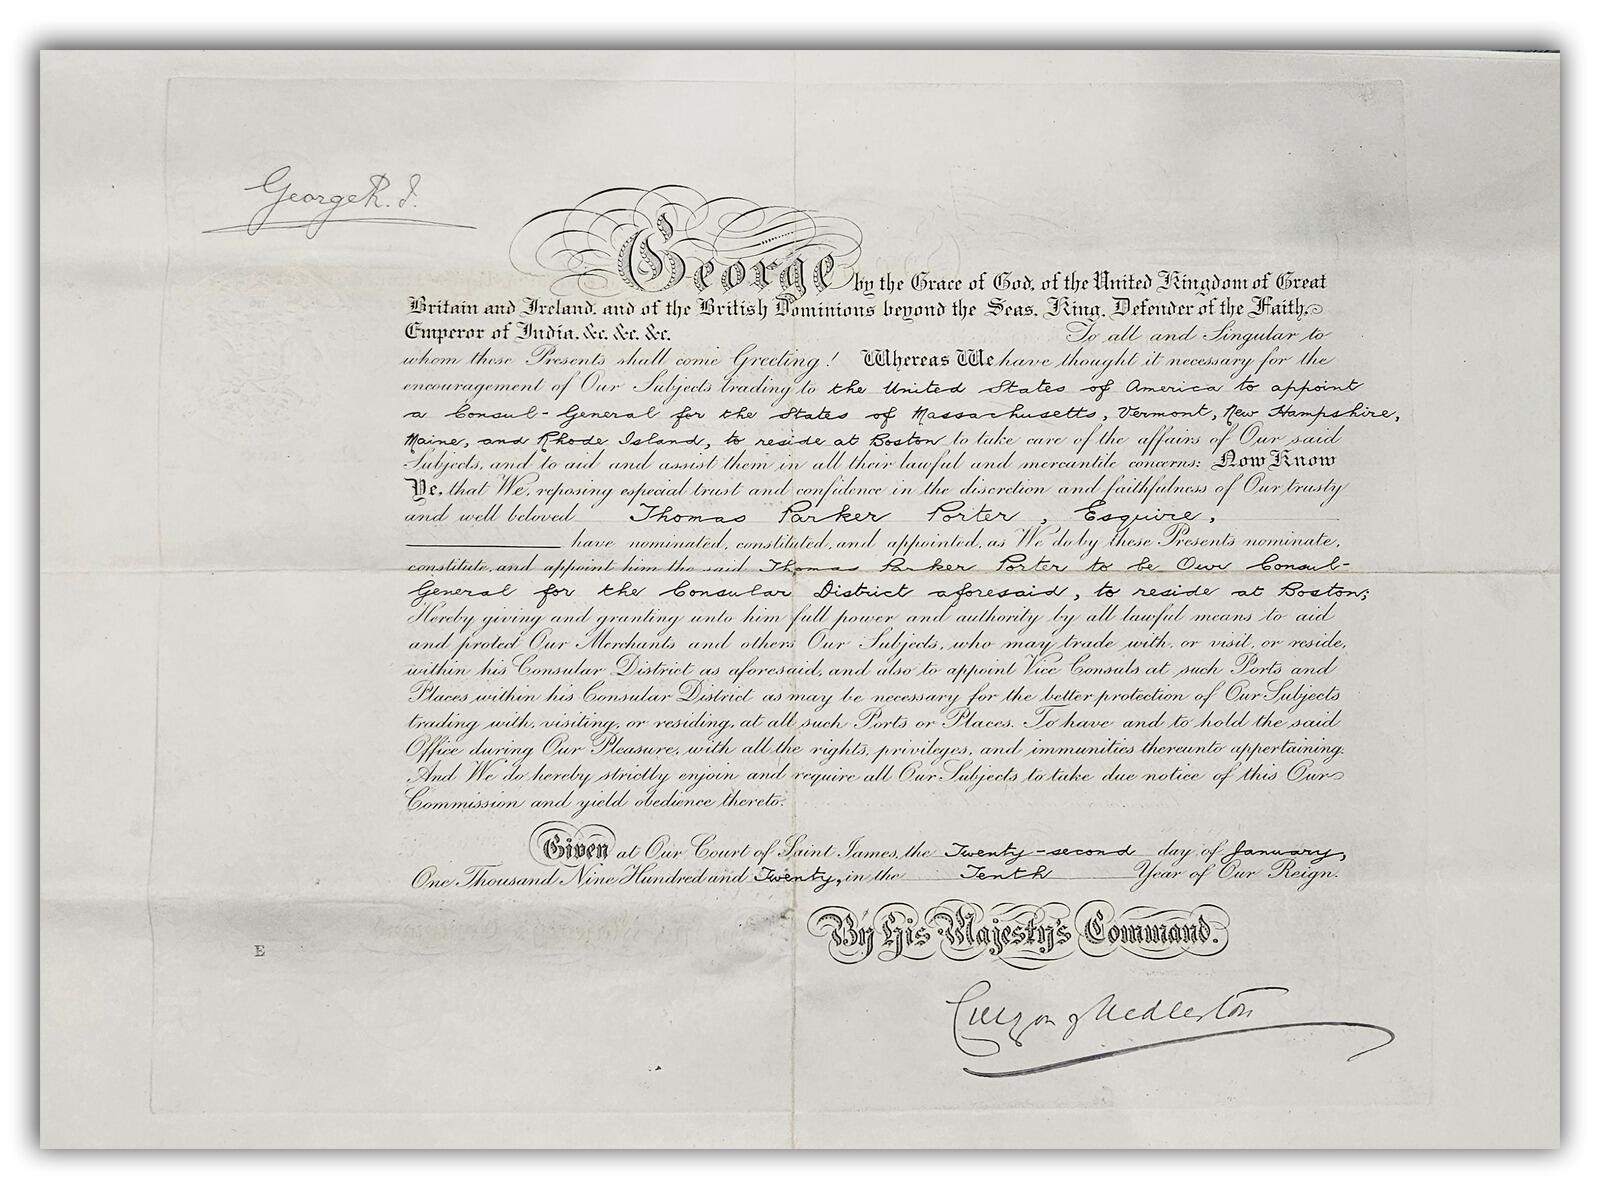 George R. I.
George by the Grace of God, of the United Kingdom of Great
Britain and Ireland, and of the British Dominions beyond the Seas, King, Defender of the Faith,
Emperor of India, &c. &c. &c. To all and Singular to
whom these Presents shall come Greeting! Whereas We have thought it necessary for the
encouragement of Our Subjects trading to the United States of America to appoint
a Consul-General for the States of Massachusetts, Vermont, New Hampshire,
Maine, and Rhode Island, to reside at Boston to take care of the affairs of Our said
Subjects, and to aid and assist them in all their lawful and mercantile concerns: Now Know
Ye, that We, reposing especial trust and confidence in the discretion and faithfulness of Our trusty
and well beloved Thomas Parker Porter, Esquire,
have nominated, constituted, and appointed, as We do by these Presents nominate,
constitute, and appoint him the said Thomas Parker Porter to be Our Consul-
General for the Consular District aforesaid, to reside at Boston;
Hereby giving and granting unto him full power and authority by all lawful means to aid
and protect Our Merchants and others Our Subjects, who may trade with, or visit, or reside,
within his Consular District as aforesaid, and also to appoint Vice Consuls at such Ports and
Places within his Consular District as may be necessary for the better protection of Our Subjects
trading with, visiting, or residing, at all such Ports or Places. To have and to hold the said
Office during Our Pleasure, with all the rights, privileges, and immunities thereunto appertaining.
And We do hereby strictly enjoin and require all Our Subjects to take due notice of this Our
Commission and yield obedience thereto.
Given at Our Court of Saint James, the Twenty-second day of January,
One Thousand Nine Hundred and Twenty, in the Tenth Year of Our Reign.
By His Majesty's Command.
E
Curzon of Kedleston